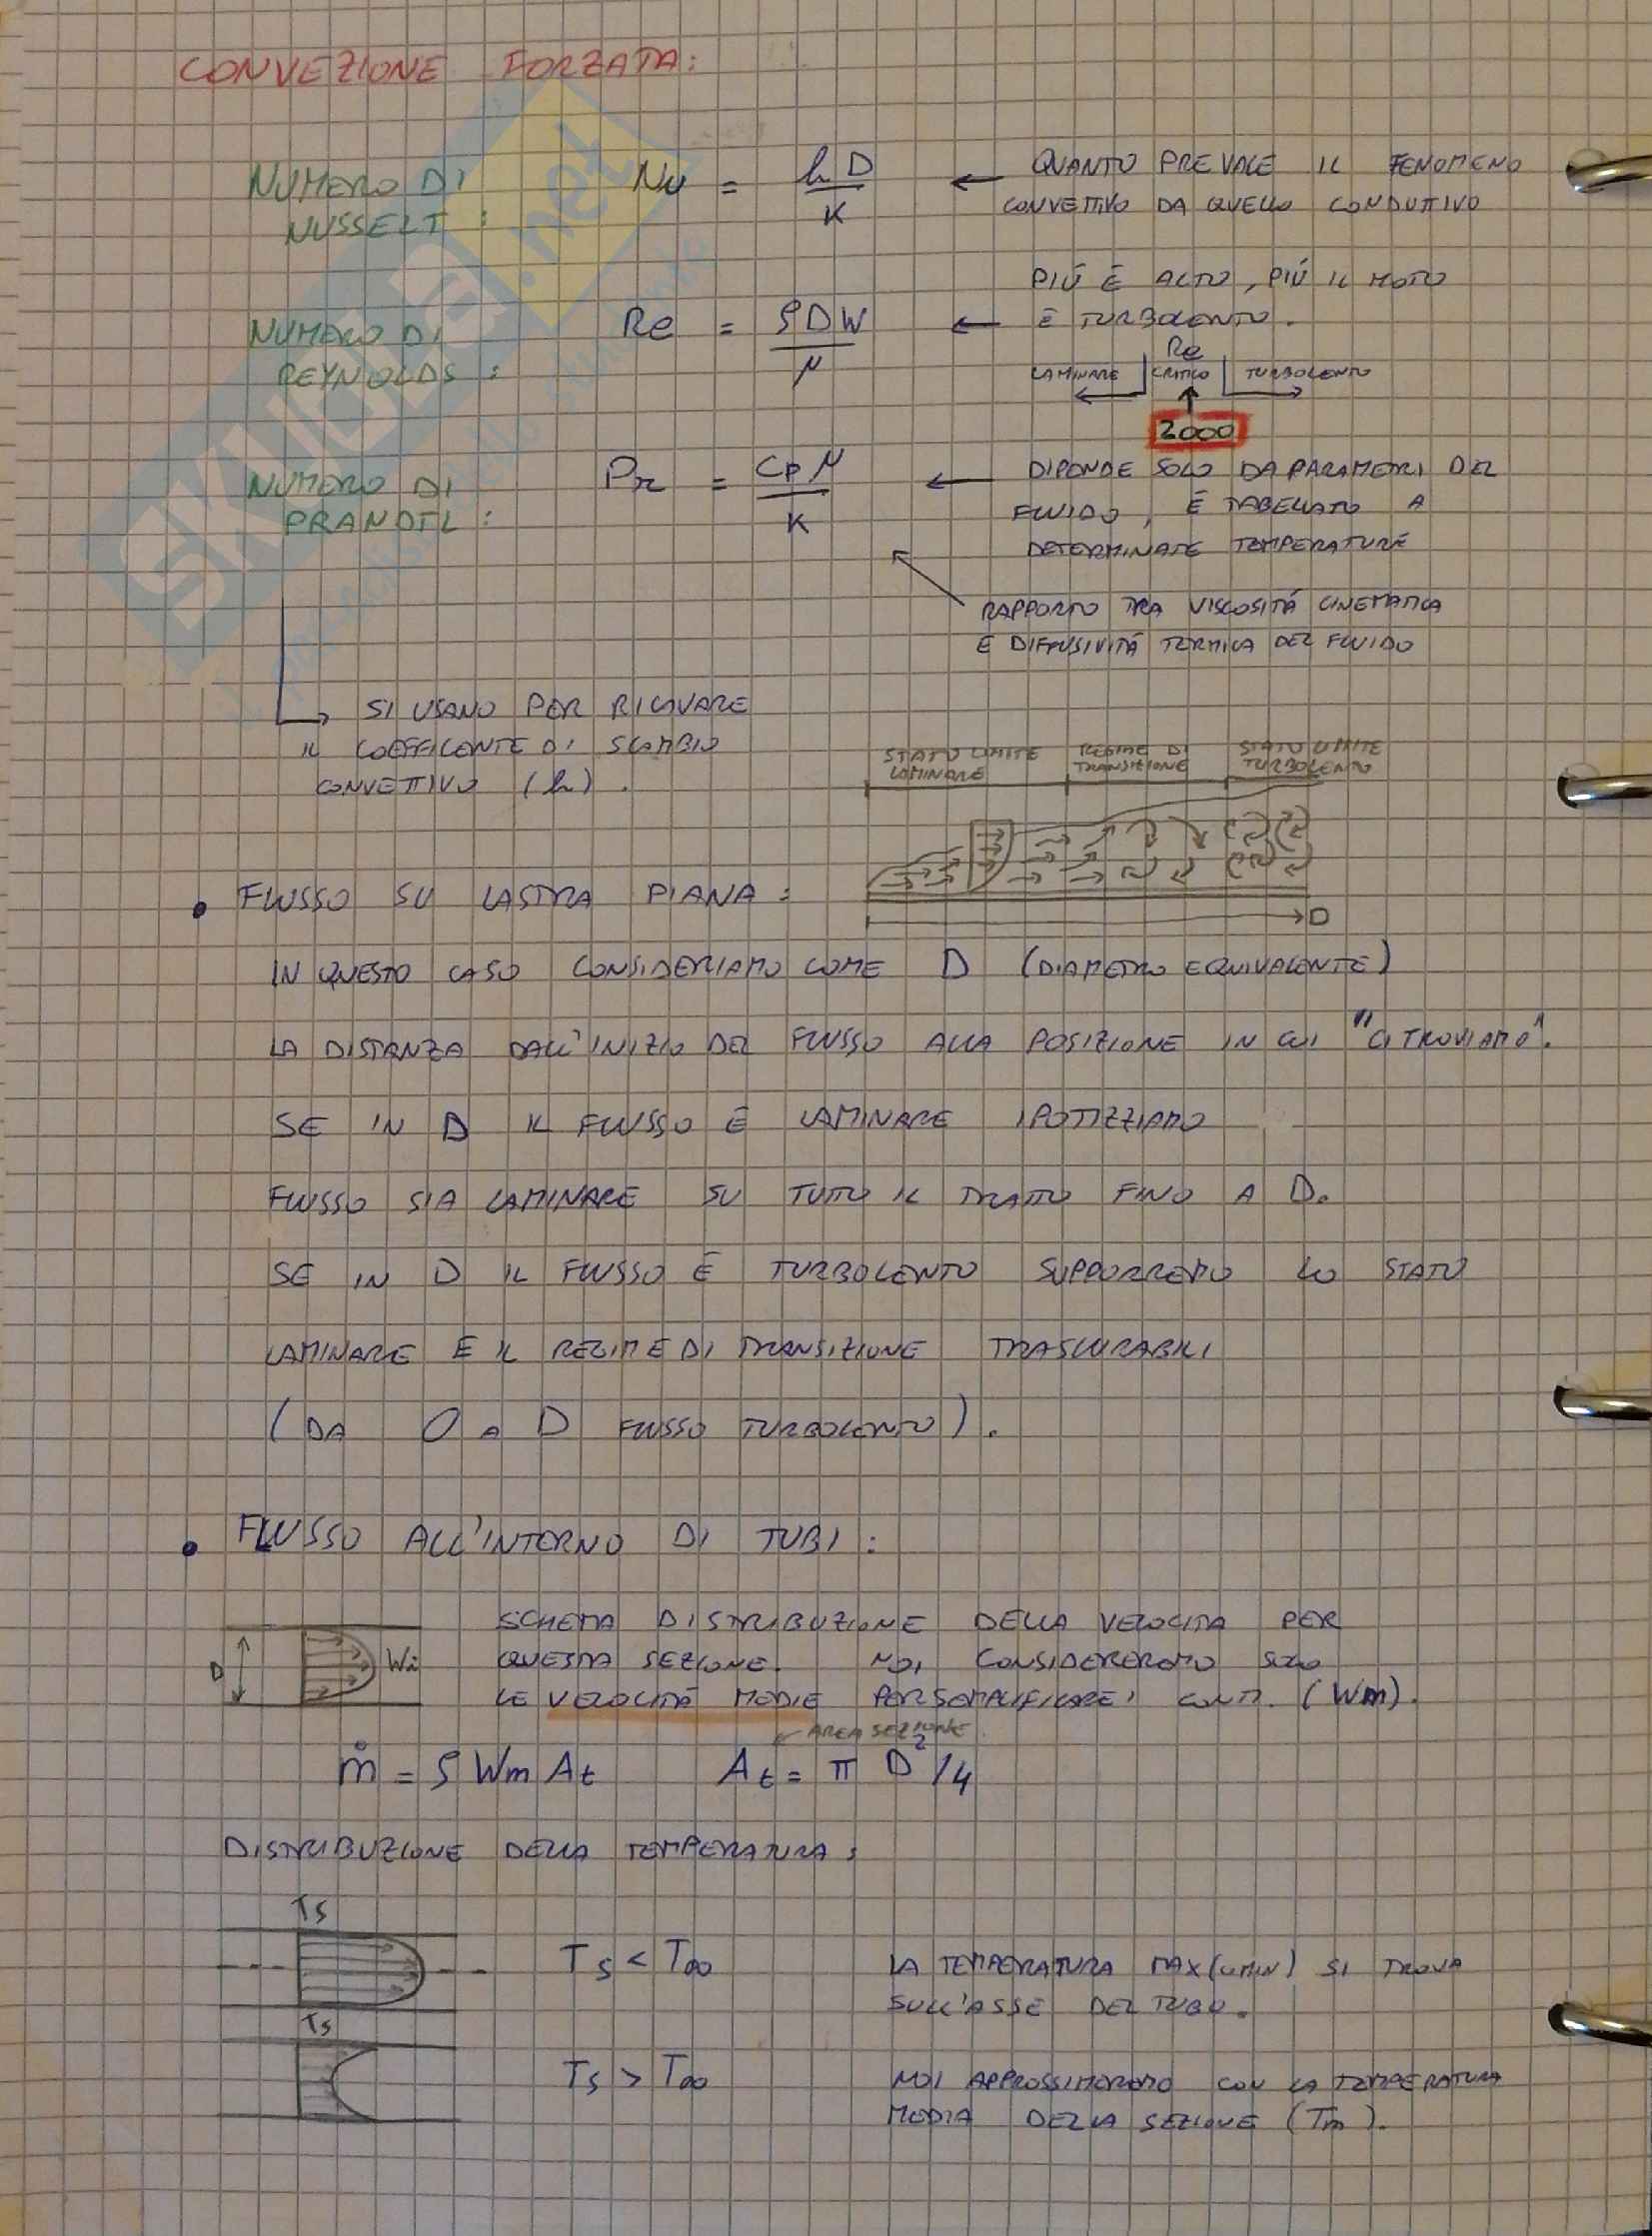 CONVEZIONE FORZATA:
NUMERO DI
NUSSELT :
Nu = hD/K
← QUANTO PREVALE IL FENOMENO
CONVETTIVO DA QUELLO CONDUTTIVO
NUMERO DI
REYNOLDS :
Re = ρDW/μ
PIÚ É ALTO, PIÚ IL MOTO
← É TURBOLENTO.
LAMINARE Re CRITICO TURBOLENTO
2000
NUMERO DI
PRANDTL :
Pr = Cpμ/K
← DIPENDE SOLO DA PARAMETRI DEL
FLUIDO, É TABELLATO A
DETERMINATE TEMPERATURE
RAPPORTO TRA VISCOSITÁ CINEMATICA
E DIFFUSIVITÁ TERMICA DEL FLUIDO
SI USANO PER RICAVARE
IL COEFFICENTE DI SCAMBIO
CONVETTIVO (h).
STATO LIMITE LAMINARE
REGIME DI TRANSIZIONE
STATO LIMITE TURBOLENTO
D
• FLUSSO SU LASTRA PIANA:
IN QUESTO CASO CONSIDERIAMO COME D (DIAMETRO EQUIVALENTE)
LA DISTANZA DALL'INIZIO DEL FLUSSO ALLA POSIZIONE IN CUI "CI TROVIAMO".
SE IN D IL FLUSSO É LAMINARE IPOTIZZIAMO
FLUSSO SIA LAMINARE SU TUTTO IL TRATTO FINO A D.
SE IN D IL FLUSSO É TURBOLENTO SUPPORREMO LO STATO
LAMINARE E IL REGIME DI TRANSIZIONE TRASCURABILI
(DA O A D FLUSSO TURBOLENTO).
• FLUSSO ALL'INTERNO DI TUBI:
D
Wi
SCHEMA DISTRIBUZIONE DELLA VELOCITA PER
QUESTA SEZIONE. NOI CONSIDEREREMO SOLO
LE VELOCITÁ MEDIE PER SEMPLIFICARE I CONTI. (Wm).
← AREA SEZIONE.
ṁ = ρ Wm At At = π D²/4
DISTRIBUZIONE DELLA TEMPERATURA:
Ts
Ts < T∞
LA TEMPERATURA MAX (O MIN) SI TROVA
SULL'ASSE DEL TUBO.
Ts
Ts > T∞
NOI APPROSSIMEREMO CON LA TEMPERATURA
MEDIA DELLA SEZIONE (Tm).
SKUOLA.net